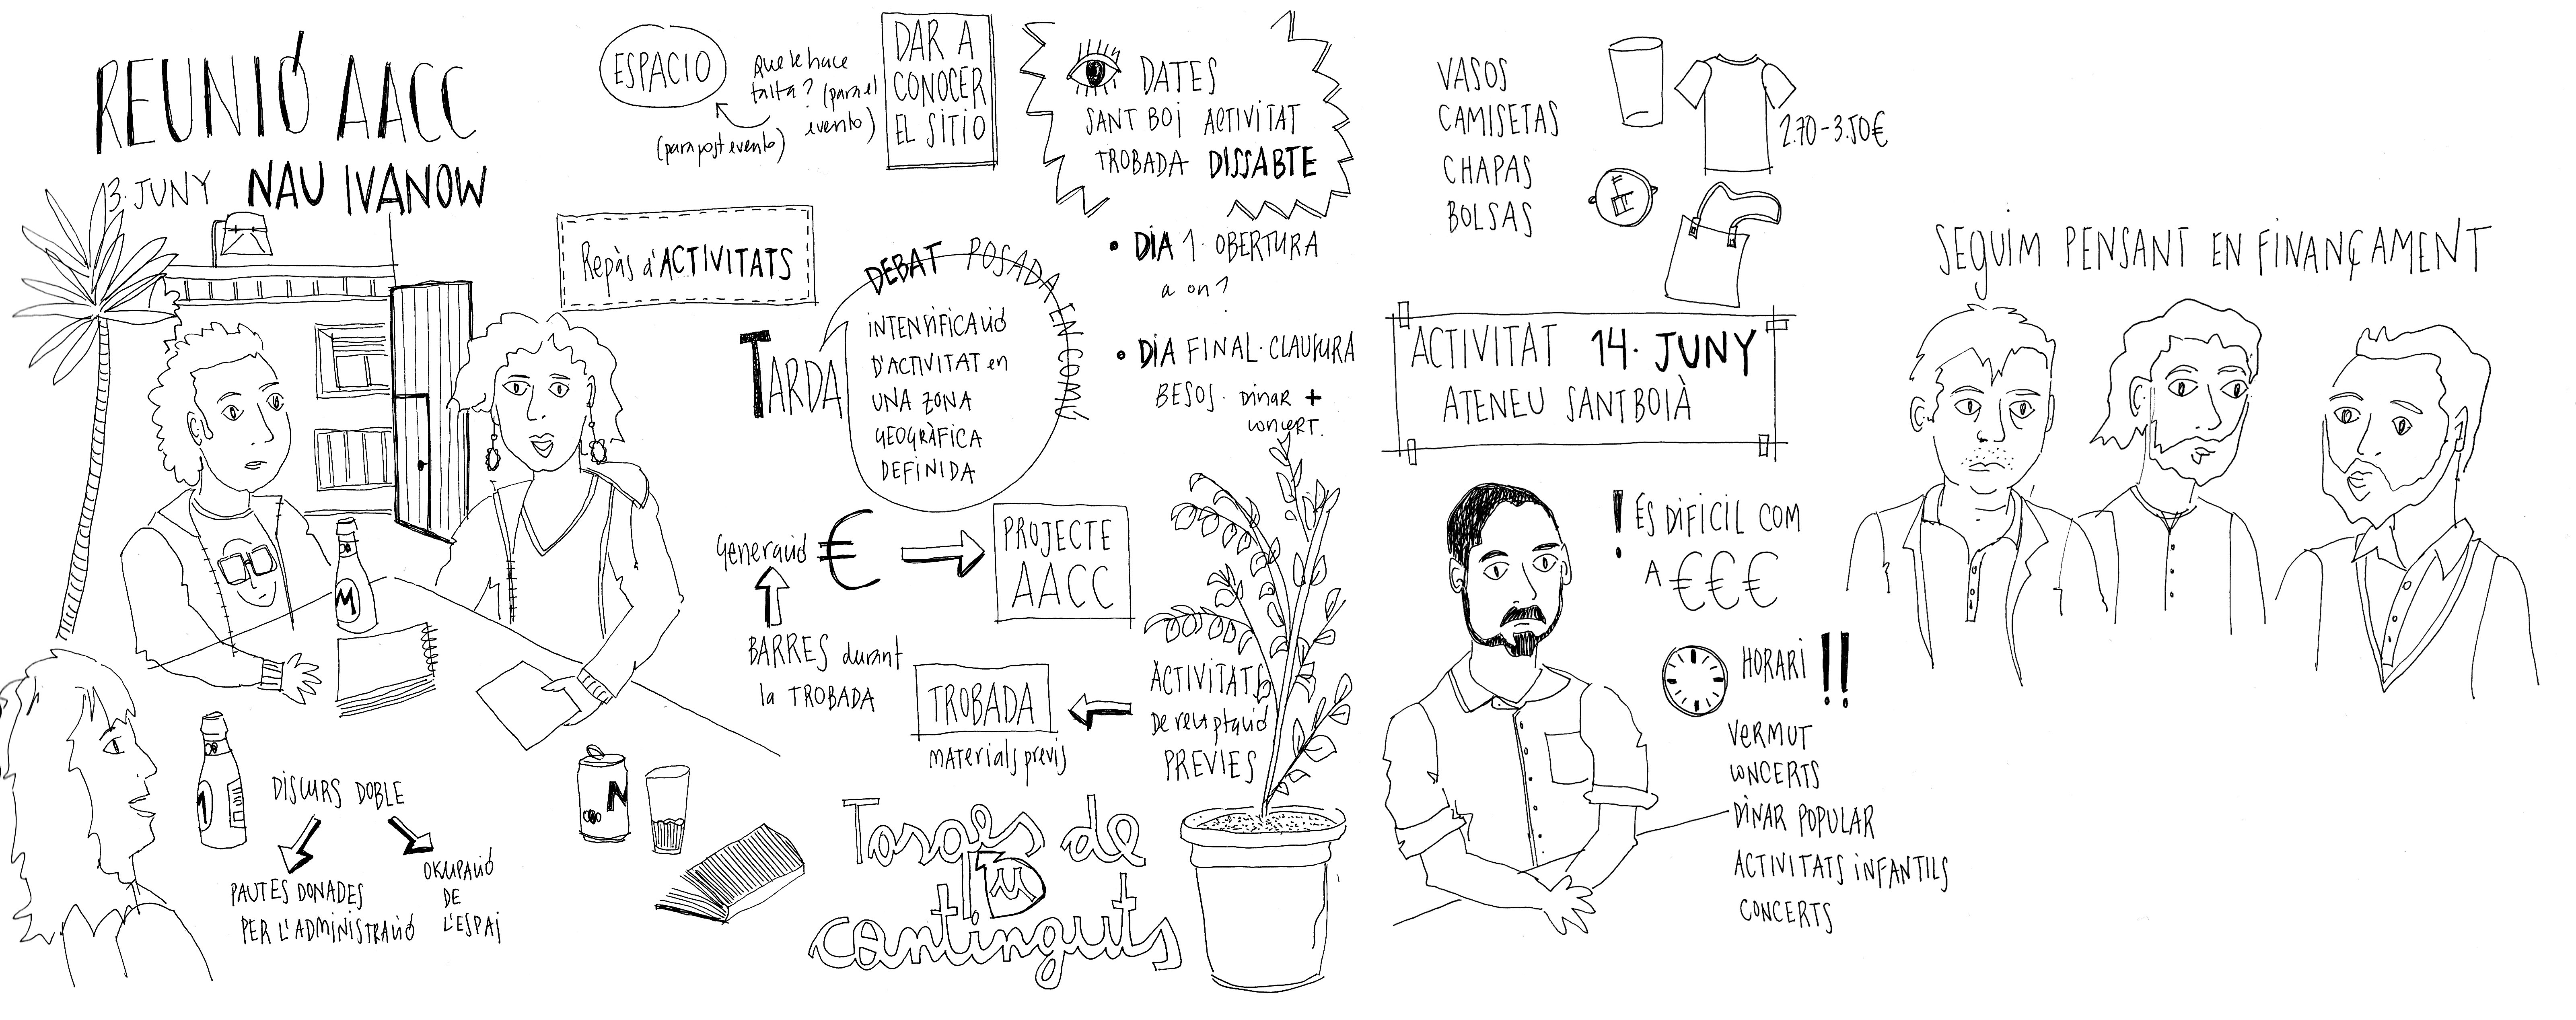 REUNIÓ AACC
13. JUNY NAU IVANOW
ESPACIO
Que le hace
falta? (para el
evento)
(para post evento)
DAR A
CONOCER
EL SITIO
DATES
SANT BOI ACTIVITAT
TROBADA DISSABTE
VASOS
CAMISETAS
CHAPAS
BOLSAS
2.70-3.50€
Repàs d'ACTIVITATS
TARDA
DEBAT POSADA EN COMÚ
INTENSIFICACIÓ
D'ACTIVITAT en
UNA ZONA
GEOGRÀFICA
DEFINIDA
• DIA 1. OBERTURA
a on?
• DIA FINAL. CLAUSURA
BESOS. Dinar +
concert.
ACTIVITAT 14. JUNY
ATENEU SANTBOIÀ
SEGUIM PENSANT EN FINANÇAMENT
Generació € → PROJECTE
AACC
BARRES durant
la TROBADA
TROBADA
materials previs
ACTIVITATS
De recaptació
PREVIES
! ES DIFICIL COM
A €€€
HORARI !!
VERMUT
CONCERTS
DINAR POPULAR
ACTIVITATS INFANTILS
CONCERTS
M
1
N
DISCURS DOBLE
PAUTES DONADES
PER L'ADMINISTRACIÓ
OKUPACIÓ
DE
L'ESPAI
Tasques de
continguts